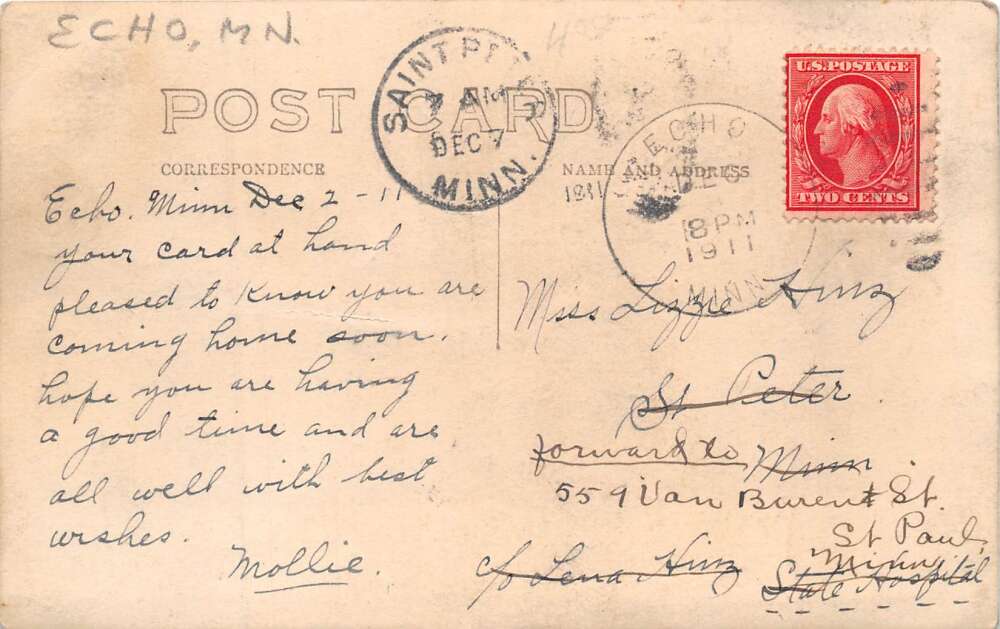 ECHO, MN.
POST CARD
SAINT PETER
7 AM
DEC 7
MINN.
1911
ECHO
DEC
8 PM
1911
MINN
U.S. POSTAGE
TWO CENTS
CORRESPONDENCE
NAME AND ADDRESS
Echo. Minn Dec 2 - 11
your card at hand
pleased to know you are
coming home soon.
hope you are having
a good time and are
all well with best
wishes.
Mollie.
Miss Lizzie Hinz
St Peter.
forward to Minn
559 Van Burent St.
St Paul,
Minn
c/o Lena Hinz State Hospital